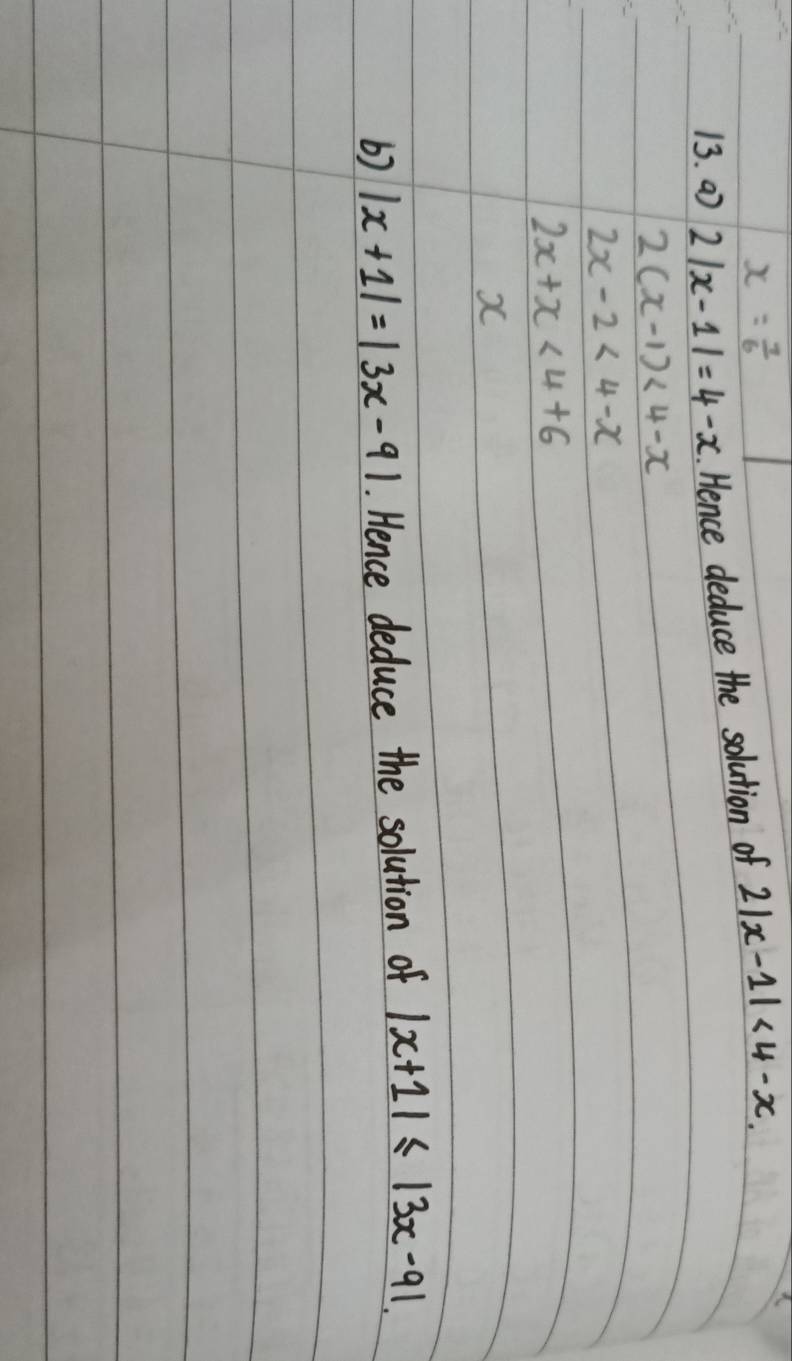 x = 7/6
13. a) 2|x-1| = 4-x. Hence deduce the solution of 2|x-1| < 4-x.
2(x-1) < 4-x
2x-2 < 4-x
2x+x < 4+6
x
b) |x+1| = |3x-9|. Hence deduce the solution of |x+1| ≤ |3x-9|.